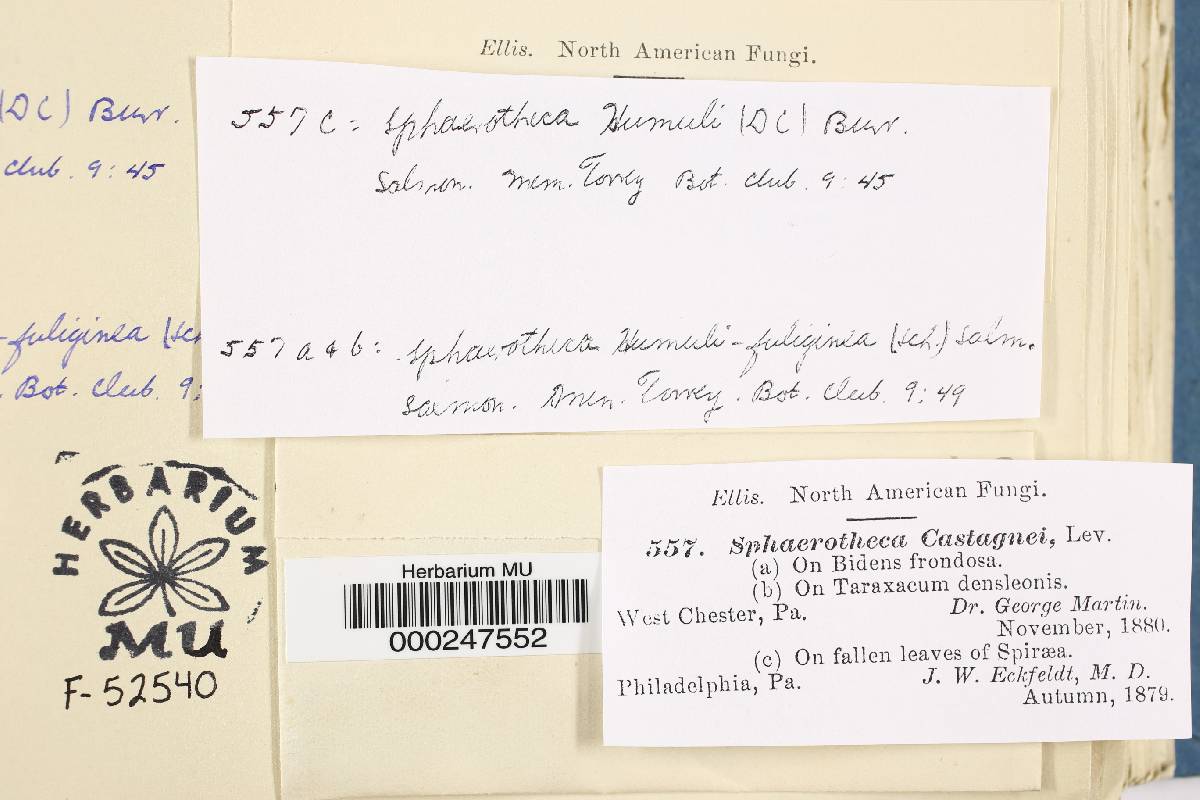 Ellis. North American Fungi.
(DC) Burr.
Club. 9:45
557 C: Sphaerotheca Humuli (DC) Burr.
Salmon. Mem. Torrey Bot. Club. 9:45
-fuliginea (Sch
. Bot. Club. 9:
557 a & b: Sphaerotheca Humuli-fuliginea (Sch.) Salm.
Salmon. Mem. Torrey. Bot. Club. 9:49
HERBARIUM
MU
F-52540
Herbarium MU
000247552
Ellis. North American Fungi.
557. Sphaerotheca Castagnei, Lev.
(a) On Bidens frondosa.
(b) On Taraxacum densleonis.
West Chester, Pa. Dr. George Martin.
November, 1880.
(c) On fallen leaves of Spiræa.
Philadelphia, Pa. J. W. Eckfeldt, M. D.
Autumn, 1879.